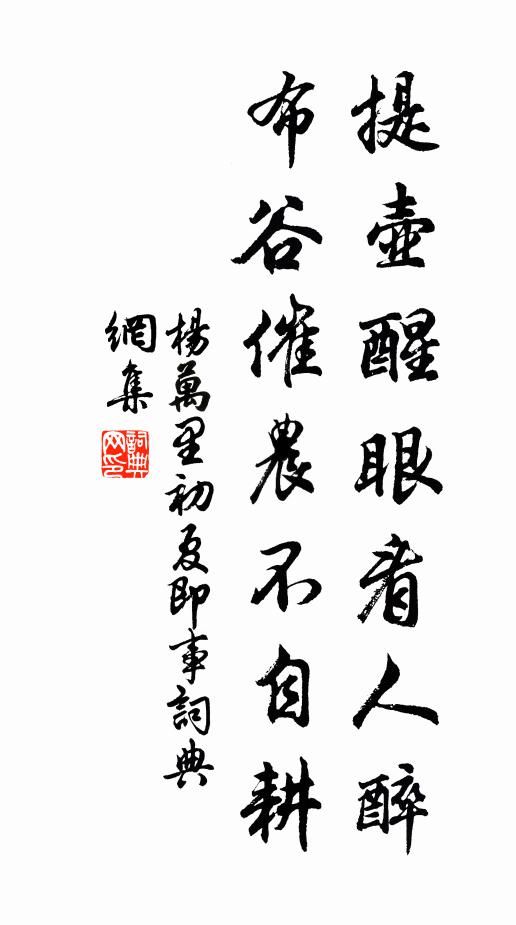 提壺醒眼看人醉
布谷催農不自耕
楊萬里初夏即事詞典
網集
詞典
网印